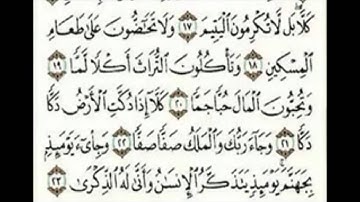 كَلَّا ۖ بَل لَّا تُكْرِمُونَ الْيَتِيمَ ١٧ وَلَا تَحَاضُّونَ عَلَىٰ طَعَامِ
الْمِسْكِينِ ١٨ وَتَأْكُلُونَ التُّرَاثَ أَكْلًا لَّمًّا ١٩
وَتُحِبُّونَ الْمَالَ حُبًّا جَمًّا ٢٠ كَلَّا إِذَا دُكَّتِ الْأَرْضُ دَكًّا
دَكًّا ٢١ وَجَاءَ رَبُّكَ وَالْمَلَكُ صَفًّا صَفًّا ٢٢ وَجِايءَ يَوْمَئِذٍ
بِجَهَنَّمَ ۚ يَوْمَئِذٍ يَتَذَكَّرُ الْإِنسَانُ وَأَنَّىٰ لَهُ الذِّكْرَىٰ ٢٣